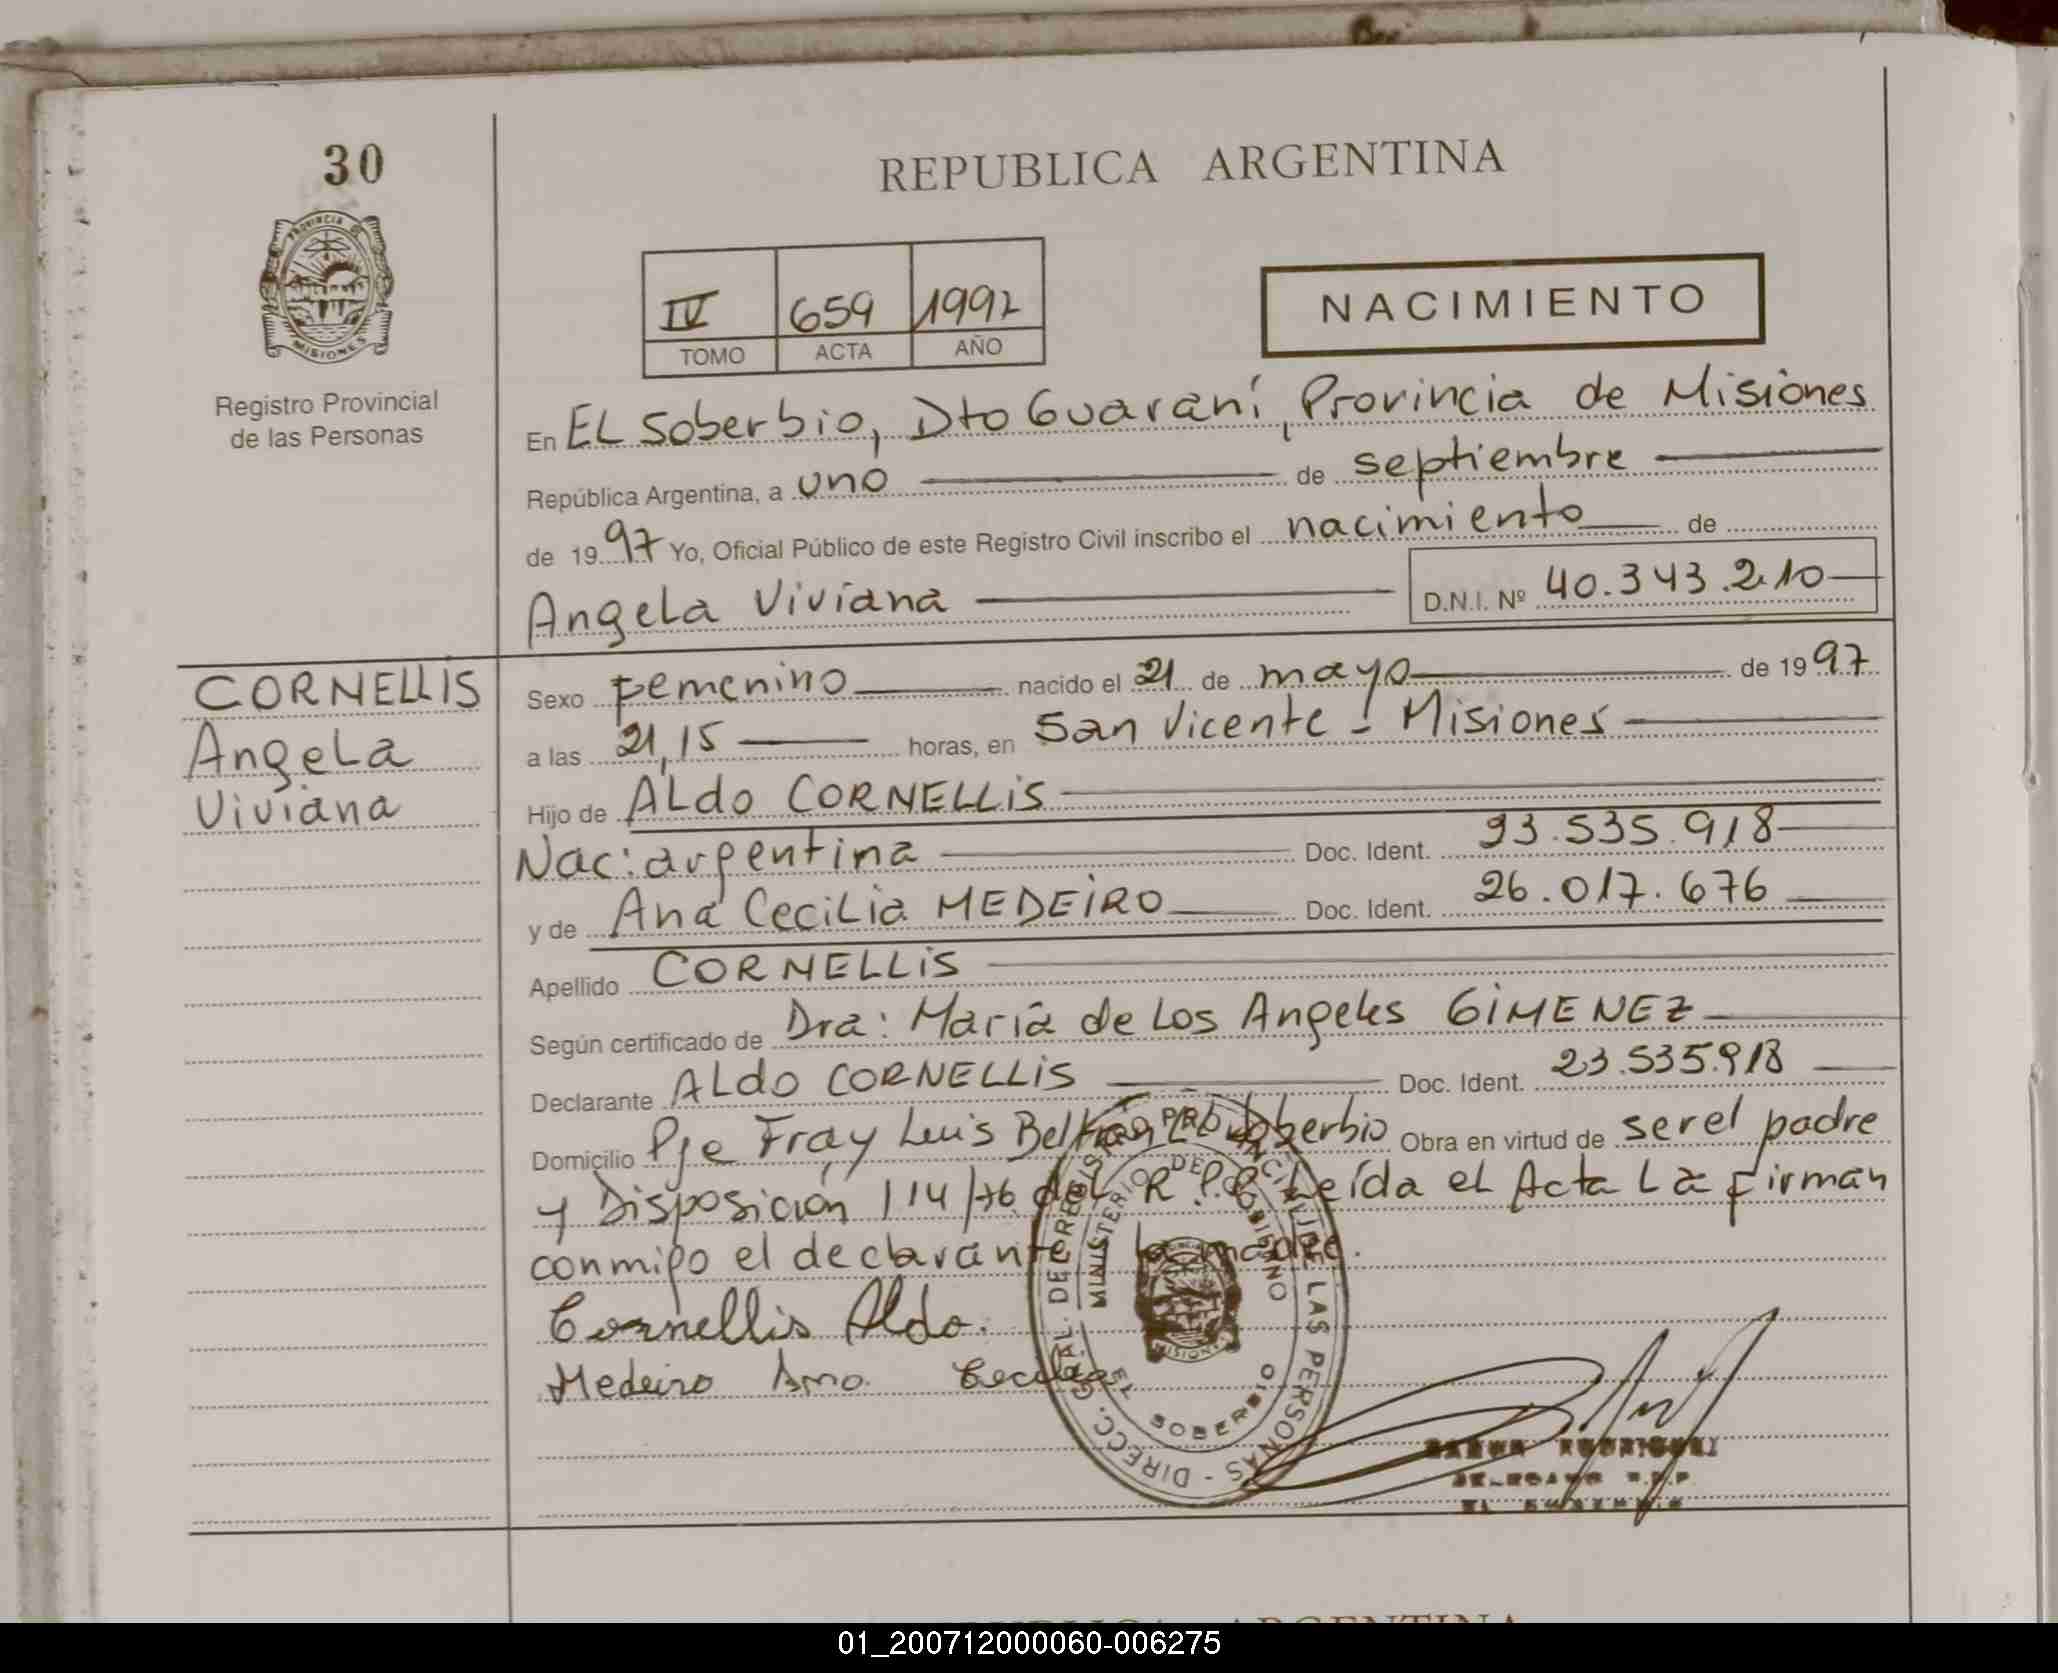 30
PROVINCIA DE
MISIONES
Registro Provincial
de las Personas
REPUBLICA ARGENTINA
IV 659 1997
TOMO ACTA AÑO
NACIMIENTO
En EL Soberbio, Dto Guaraní, Provincia de Misiones
República Argentina, a uno de septiembre
de 1997 Yo, Oficial Público de este Registro Civil inscribo el nacimiento de
Angela Viviana D.N.I. Nº 40.343.210
CORNELLIS
Angela
Viviana
Sexo Femenino nacido el 21 de mayo de 1997
a las 21,15 horas, en San Vicente - Misiones
Hijo de ALdo CORNELLiS
Nac: argentina Doc. Ident. 23.535.918
y de Ana Cecilia MEDEiRO Doc. Ident. 26.017.676
Apellido CORNELLiS
Según certificado de Dra: María de Los Angeles GiMENEZ
Declarante ALdo CORNELLiS Doc. Ident. 23.535.918
Domicilio Pje Fray Luis Beltrán Soberbio Obra en virtud de ser el padre
y Disposición 114/76 del R.P.P. Leída el Acta La firman
conmigo el declarante y la madre.
Cornellis Aldo.
Medeiro Ana Cecilia
DIRECC. GRAL. DEL REGISTRO PROVINCIAL DE LAS PERSONAS
MINISTERIO DE GOBIERNO
MISIONES
EL SOBERBIO
RODRIGUEZ
DELEGADO R.P.P.
EL SOBERBIO
REPUBLICA ARGENTINA
01_200712000060-006275